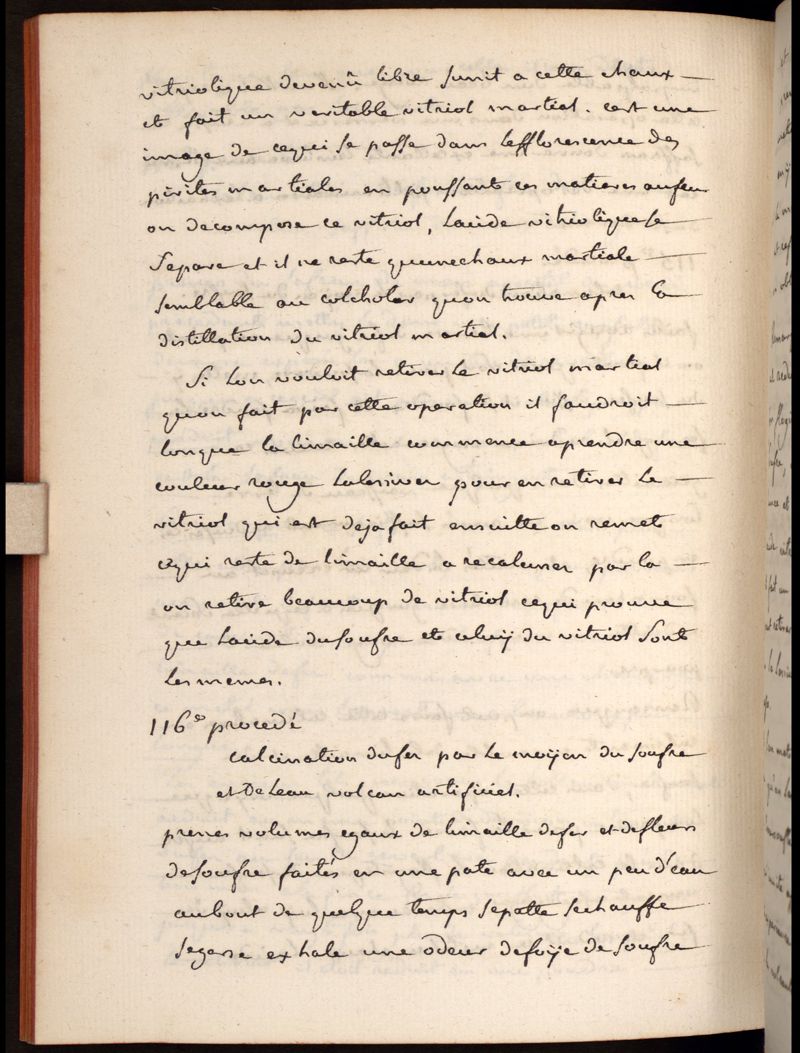 vitriolique devenû libre sunit a cette chaux
et fait un veritable vitriol martial. cest une
image de cequi se passe dans lefflorescence des
pirites martiales en poussant ces matieres aufeu
on decompose ce vitriol, lacide vitriolique se
separe et il ne reste quunechaux martiale
semblable au colchotar quon trouve apres la
distillation du vitriol martial.
Si lon vouloit retirer le vitriol martial
quon fait par cette operation il faudroit
lorsque la limaille commence aprendre une
couleur rouge lalessiver pour en retirer le
vitriol qui est deja fait ensuitte on remet
cequi reste de limaille a recalciner par la
on retire beaucoup de vitriol cequi prouve
que lacide dusoufre et celuij du vitriol sont
les memes.
116e procedé
calcination dufer par le moijen du soufre
et de leau volcan artificiel.
prenes volumes egaux de limaille defer et defleurs
desoufre faités en une pate avec un peu d'eau
aubout de quelque temps sepatte sechauffe
segerse exhale une odeur defoije de soufre